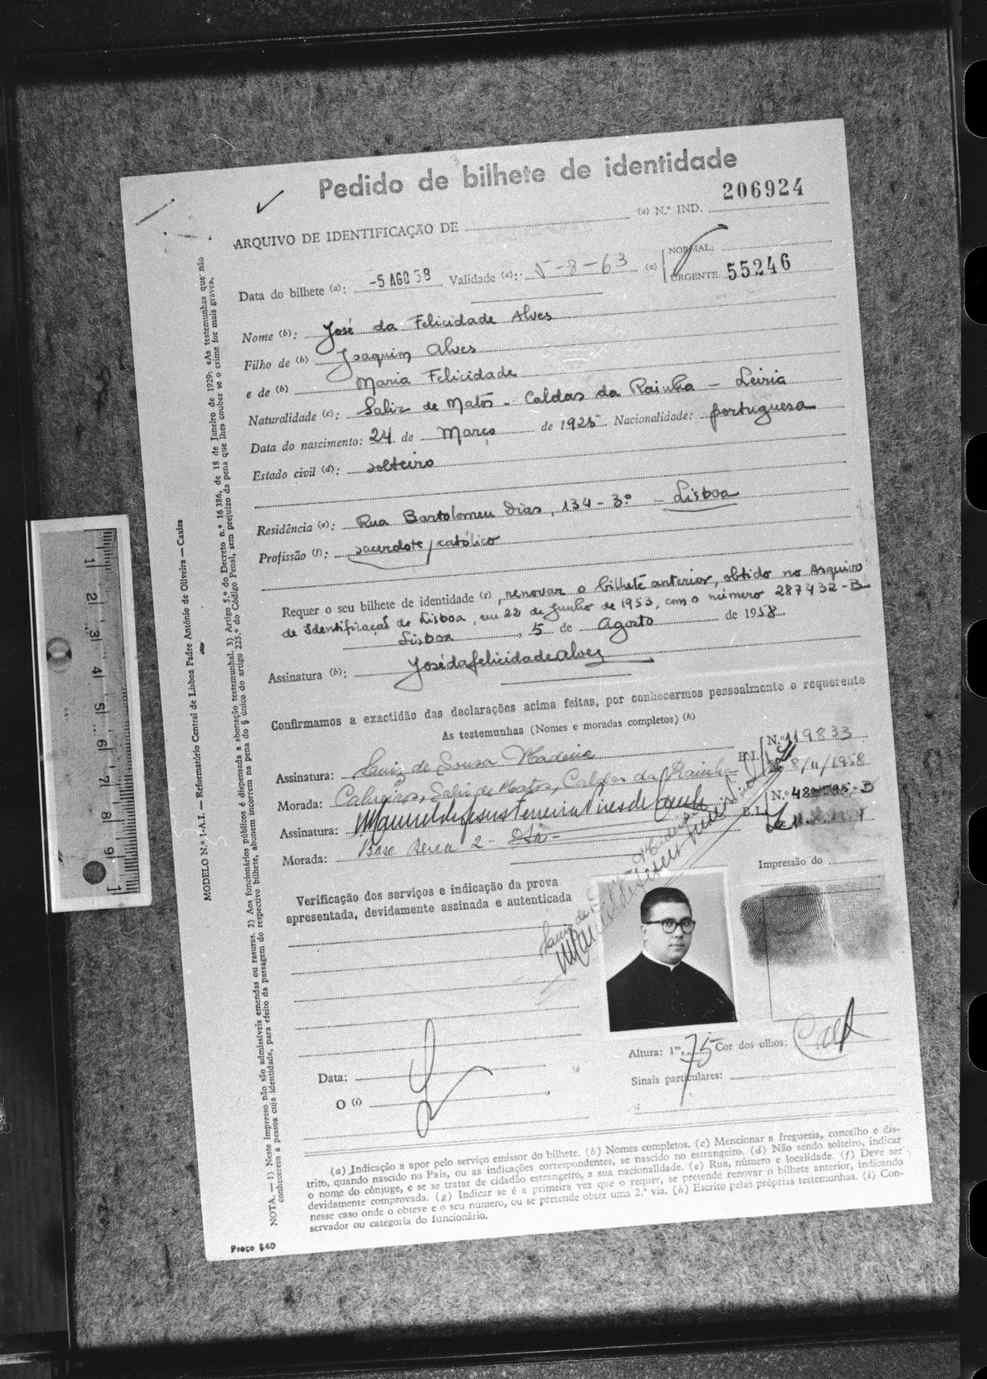 Pedido de bilhete de identidade
206924
ARQUIVO DE IDENTIFICAÇÃO DE (a) N.º IND.
NORMAL:
Data do bilhete (a): -5 AGO 58 Validade (a): 5-8-63 (a) URGENTE 55246
Nome (b): José da Felicidade Alves
Filho de (b) Joaquim Alves
e de (b) Maria Felicidade
Naturalidade (c): Salir de Matos - Caldas da Rainha - Leiria
Data do nascimento: 24 de Março de 1925 Nacionalidade: portuguesa
Estado civil (d): solteiro
Residência (e): Rua Bartolomeu Dias, 134-3º - Lisboa
Profissão (f): sacerdote católico
Requer o seu bilhete de identidade (g), renovar o bilhete anterior, obtido no Arquivo
de Identificação de Lisboa, em 22 de Junho de 1953, com o número 287432-B
Lisboa, 5 de Agosto de 1958
Assinatura (b): José da Felicidade Alves
Confirmamos a exactidão das declarações acima feitas, por conhecermos pessoalmente o requerente
As testemunhas (Nomes e moradas completos) (h)
Assinatura: Luiz de Sousa Madeira B.I. N.º 119833
8/11/1958
Morada: Salir de Matos, Caldas da Rainha
Assinatura: Manuel de Jesus Ferreira B.I. N.º
Morada: Base Aérea 2 - Ota -
Verificação dos serviços e indicação da prova
apresentada, devidamente assinada e autenticada
Impressão do
Data:
O (i)
Altura: 1m,75 Cor dos olhos: Cast
Sinais particulares:
(a) Indicação a apor pelo serviço emissor do bilhete. (b) Nomes completos. (c) Mencionar a freguesia, concelho e dis-
trito, quando nascido no País, ou as indicações correspondentes, se nascido no estrangeiro. (d) Não sendo solteiro, indicar
o nome do cônjuge, e se se tratar de cidadão estrangeiro, a sua nacionalidade. (e) Rua, número e localidade. (f) Deve ser
devidamente comprovada. (g) Indicar se é a primeira vez que o requer, se pretende renovar o bilhete anterior, indicando
nesse caso onde o obteve e o seu número, ou se pretende obter uma 2.ª via. (h) Escrito pelas próprias testemunhas. (i) Con-
servador ou categoria do funcionário.
Preço $40
MODELO N.º 1-A.I. — Reformatório Central de Lisboa Padre António de Oliveira — Caxias
NOTA. — 1) Neste impresso não são admissíveis emendas ou rasuras. 2) Aos funcionários públicos é dispensada a abonação testemunhal. 3) Artigo 5.º do Decreto n.º 16 386, de 18 de Janeiro de 1929: «As testemunhas que não
conhecerem a pessoa cuja identidade, para efeito da passagem do respectivo bilhete, abonem incorrem na pena do § único do artigo 225.º do Código Penal, sem prejuízo da pena que lhes couber se o crime for mais grave».
1 2 3 4 5 6 7 8 9